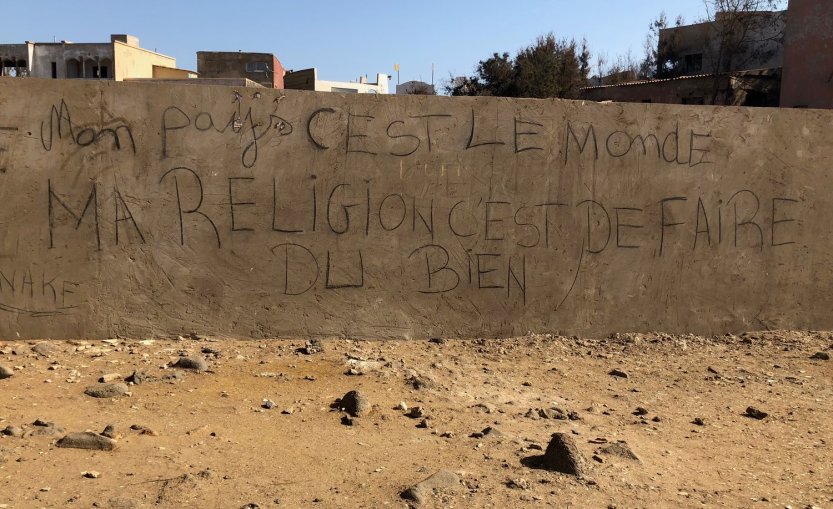 Mon pays C'EST LE Monde
MA RELIGION C'EST DE FAIRE
DU BIEN
NAKE